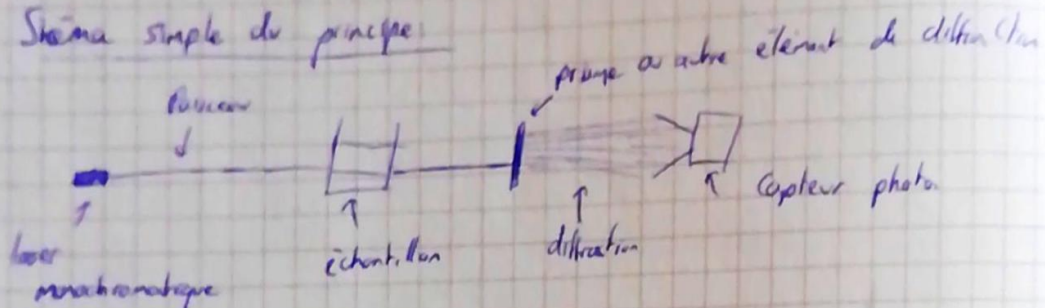 Shéma simple du principe
prisme ou autre élément de diffraction
faisceau
Capteur photo
laser
monochromatique
échantillon
diffraction